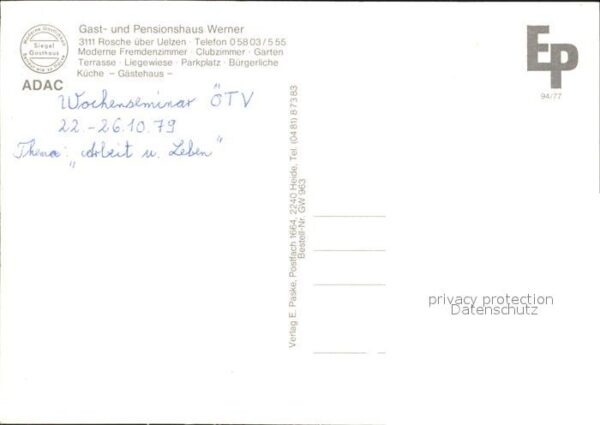 Gast- und Pensionshaus Werner
3111 Rosche über Uelzen · Telefon 0 58 03 / 5 55
Moderne Fremdenzimmer · Clubzimmer · Garten
Terrasse · Liegewiese · Parkplatz · Bürgerliche
Küche – Gästehaus –
Siegel
Gasthaus
ADAC
Wochenseminar ÖTV
22.-26.10.79
Thema: „Arbeit u. Leben"
Verlag E. Paske, Postfach 1664, 2240 Heide, Tel. (04 81) 8 73 83
Bestell-Nr. GW 963
Ep
94/77
privacy protection
Datenschutz